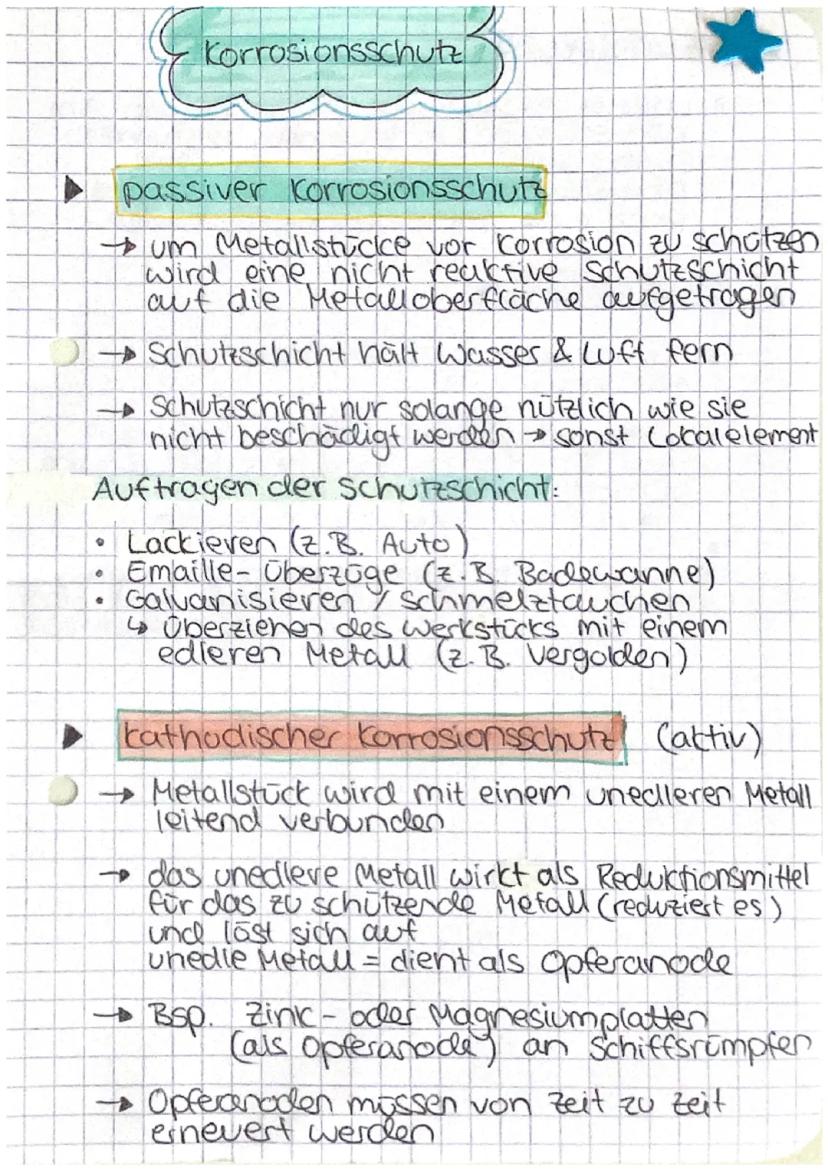 Korrosionsschutz
▶ passiver Korrosionsschutz
→ um Metallstücke vor Korrosion zu schützen
wird eine nicht reaktive Schutzschicht
auf die Metalloberfläche aufgetragen
→ Schutzschicht hält Wasser & Luft fern
→ Schutzschicht nur solange nützlich wie sie
nicht beschädigt werden → sonst Lokalelement
Auftragen der Schutzschicht:
• Lackieren (z.B. Auto)
• Emaille-Überzüge (z.B. Badewanne)
• Galvanisieren / Schmelztauchen
↳ Überziehen des Werkstücks mit einem
edleren Metall (z.B. Vergolden)
▶ kathodischer Korrosionsschutz (aktiv)
→ Metallstück wird mit einem unedleren Metall
leitend verbunden
→ das unedlere Metall wirkt als Reduktionsmittel
für das zu schützende Metall (reduziert es)
und löst sich auf
unedle Metall = dient als Opferanode
→ Bsp. Zink- oder Magnesiumplatten
(als Opferanode) an Schiffsrümpfen
→ Opferanoden müssen von Zeit zu Zeit
erneuert werden